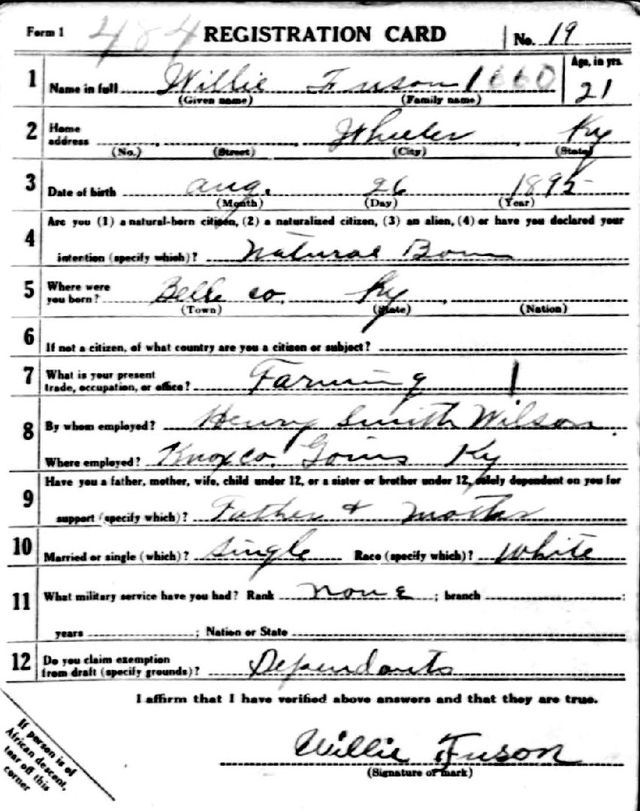 Form 1 484 REGISTRATION CARD No. 19
1 Name in full Willie Fuson 1660 Age, in yrs. 21
(Given name) (Family name)
2 Home address Wheeler Ky
(No.) (Street) (City) (State)
3 Date of birth Aug. 26 1895
(Month) (Day) (Year)
4 Are you (1) a natural-born citizen, (2) a naturalized citizen, (3) an alien, (4) or have you declared your
intention (specify which)? Natural Born
5 Where were you born? Belle co. Ky
(Town) (State) (Nation)
6 If not a citizen, of what country are you a citizen or subject?
7 What is your present trade, occupation, or office? Farming 1
8 By whom employed? Henry Smith Wilson.
Where employed? Knox co. Goins Ky
9 Have you a father, mother, wife, child under 12, or a sister or brother under 12, solely dependent on you for
support (specify which)? Father & mother
10 Married or single (which)? Single Race (specify which)? White
11 What military service have you had? Rank none ; branch
years ; Nation or State
12 Do you claim exemption from draft (specify grounds)? Dependants
I affirm that I have verified above answers and that they are true.
Willie Fuson
(Signature or mark)
If person is of
African descent,
tear off this
corner